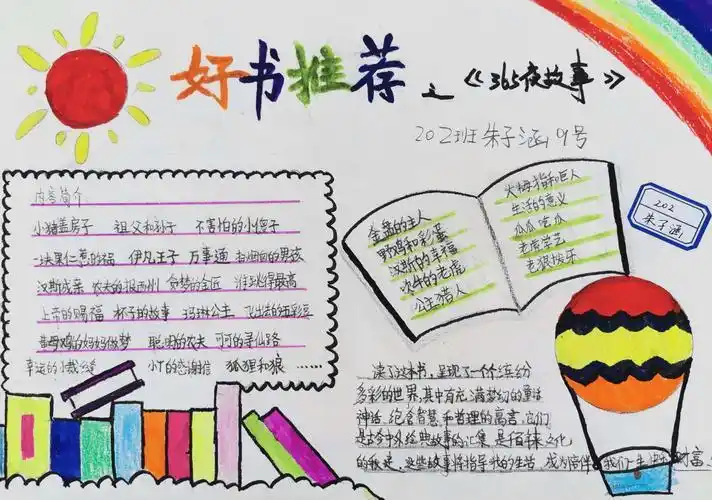 好书推荐之《365夜故事》
202班 朱子涵 9号
内容简介
小猪盖房子 祖父和孙子 不害怕的小傻子
伊凡王子 万事通 的男孩
汉斯成亲 农夫的 贪梦的金匠 谁跳得最高
上帝的赐福 杯子的故事 玛琳公主 飞出去的五彩豆
聪明的农夫 可可的寻仙路
幸运的小裁缝 小丁的感谢信 狐狸和狼 ……
金盘的主人
野鸡和彩蛋
汉斯的幸福
吹牛的老虎
公主猎人
大拇指和巨人
生活的意义
瓜瓜吃瓜
老虎学艺
老狼快乐
202
朱子涵
读了这本书,呈现了一个缤纷
多彩的世界,其中有充满梦幻的童话
神话,饱含智慧和哲理的寓言,它们
是古今中外经典故事的汇集,是传统文化
的 这些故事将指导我的生活,成为陪伴我们一生的财富。